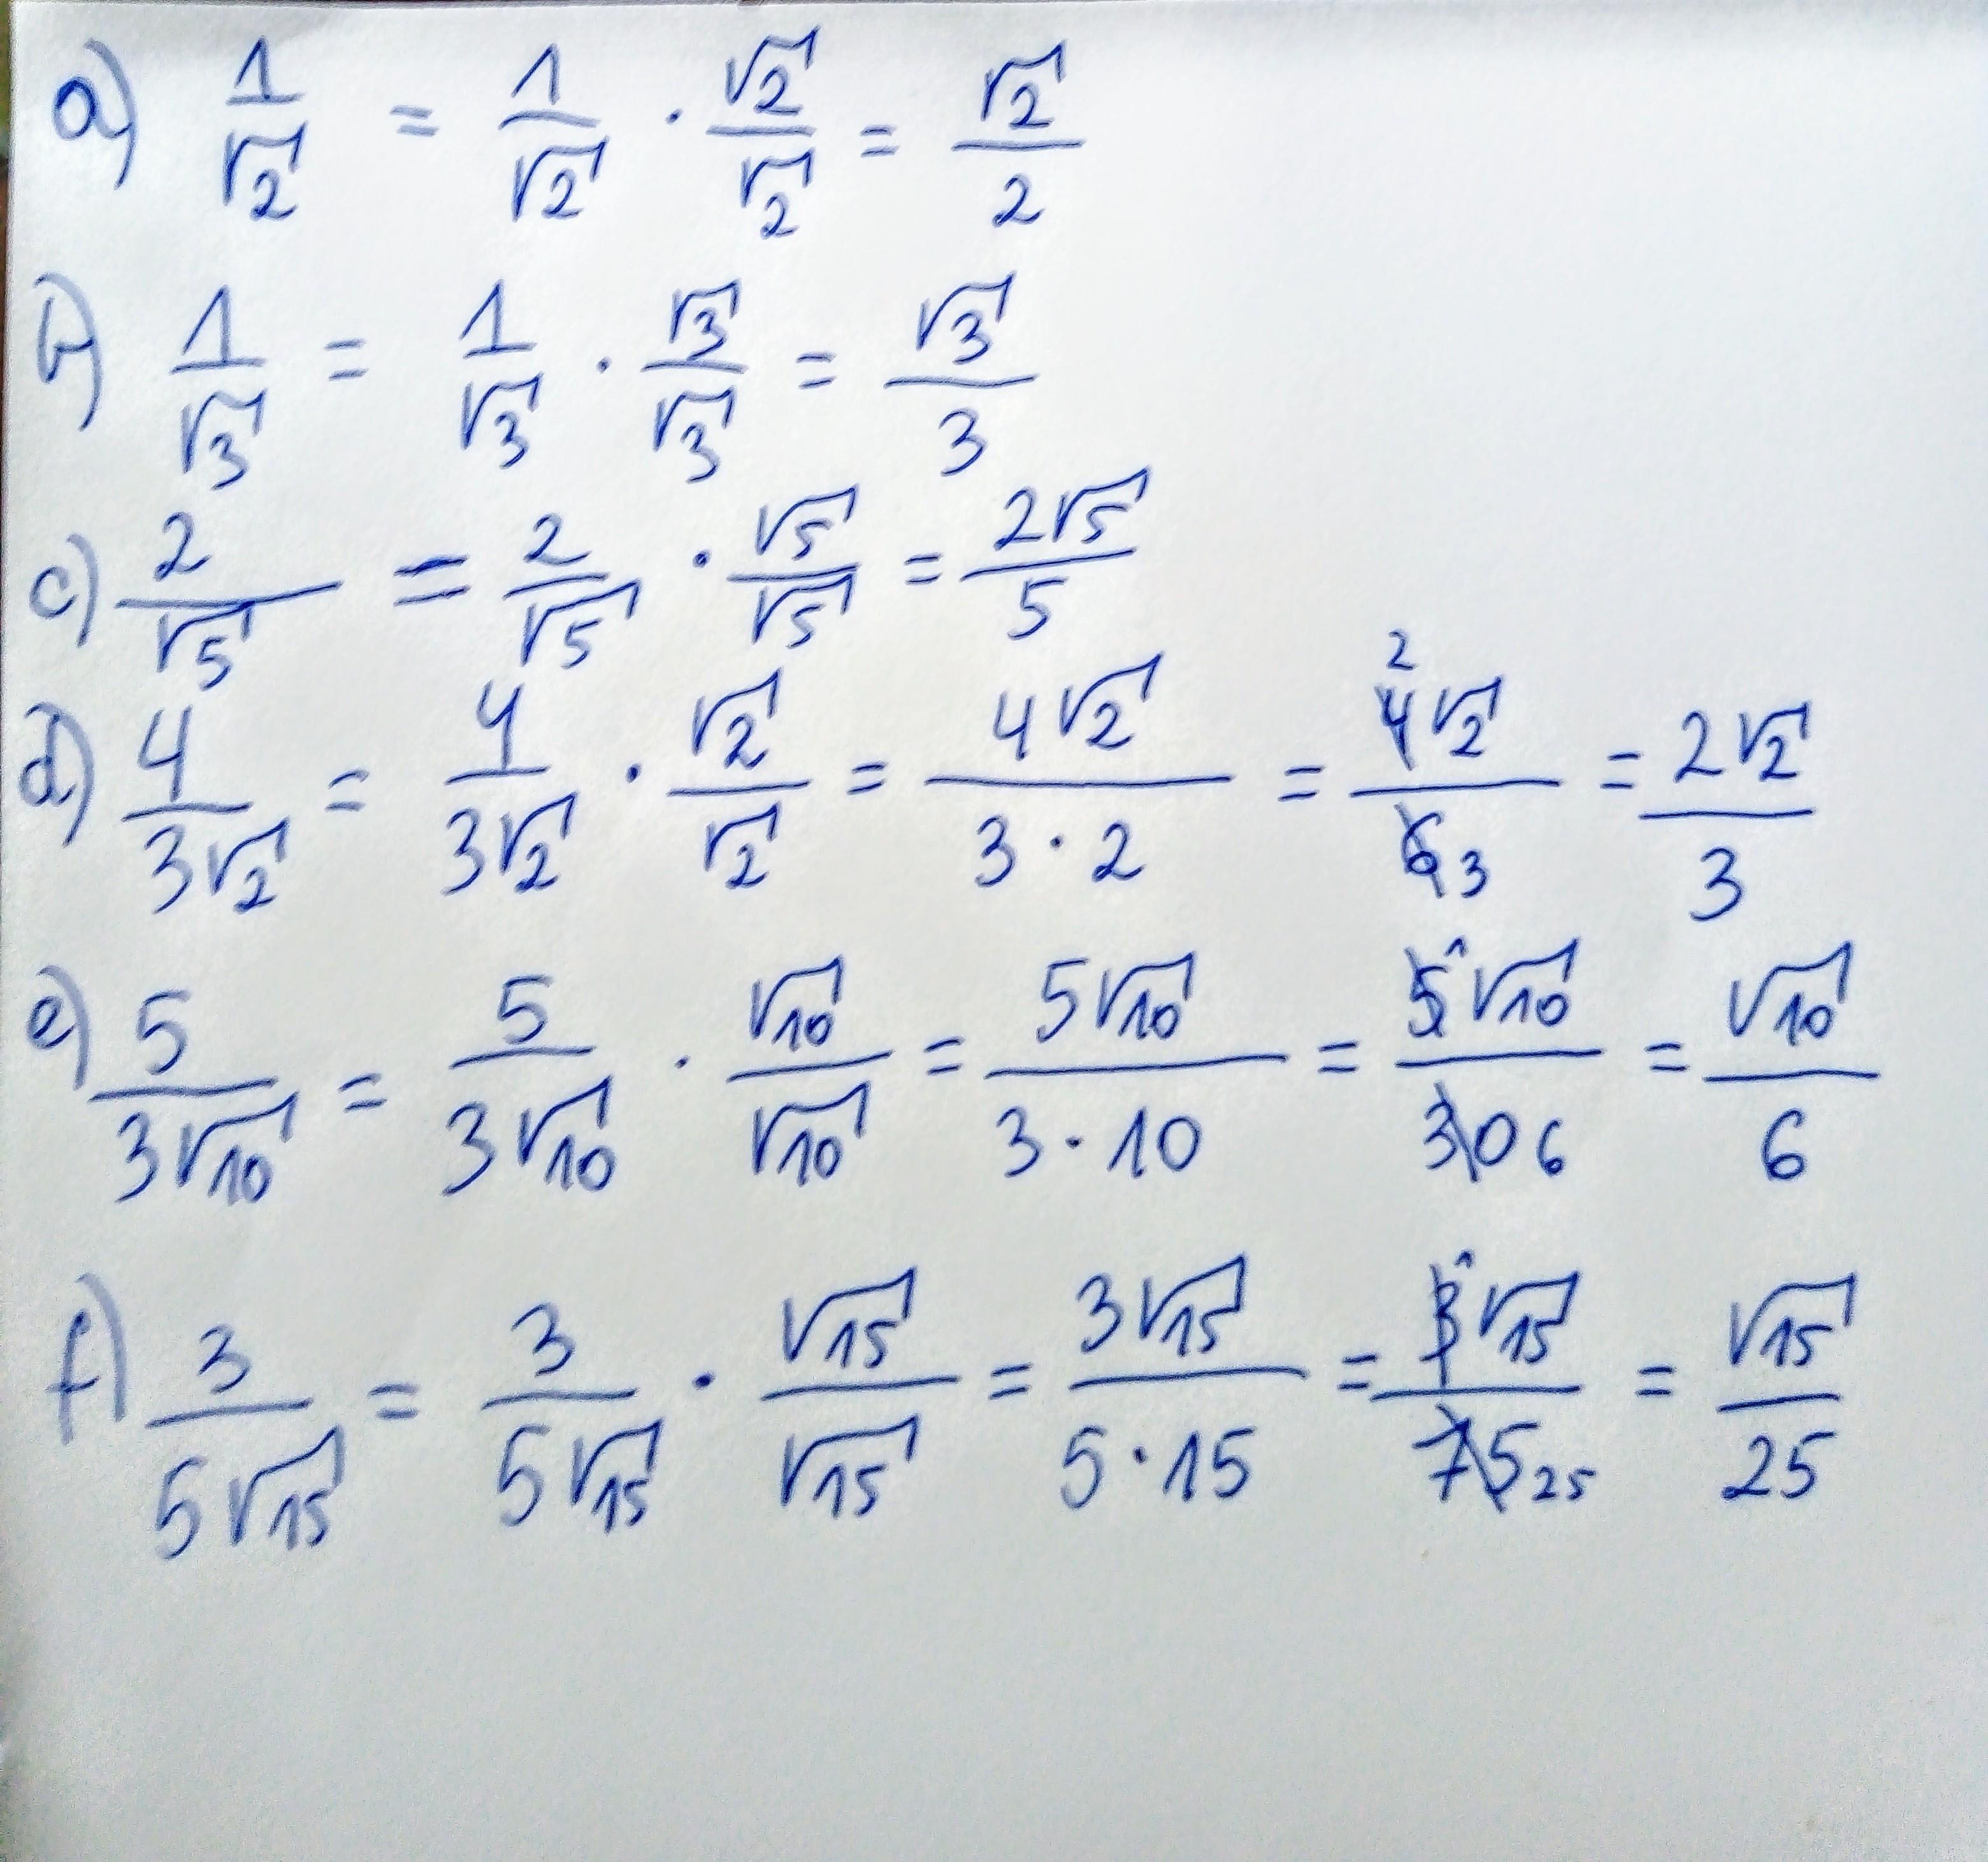 a) 1/√2 = 1/√2 · √2/√2 = √2/2
b) 1/√3 = 1/√3 · √3/√3 = √3/3
c) 2/√5 = 2/√5 · √5/√5 = 2√5/5
d) 4/3√2 = 4/3√2 · √2/√2 = 4√2/3·2 = 4 2 √2/6 3 = 2√2/3
e) 5/3√10 = 5/3√10 · √10/√10 = 5√10/3·10 = 5 1 √10/30 6 = √10/6
f) 3/5√15 = 3/5√15 · √15/√15 = 3√15/5·15 = 3 1 √15/75 25 = √15/25